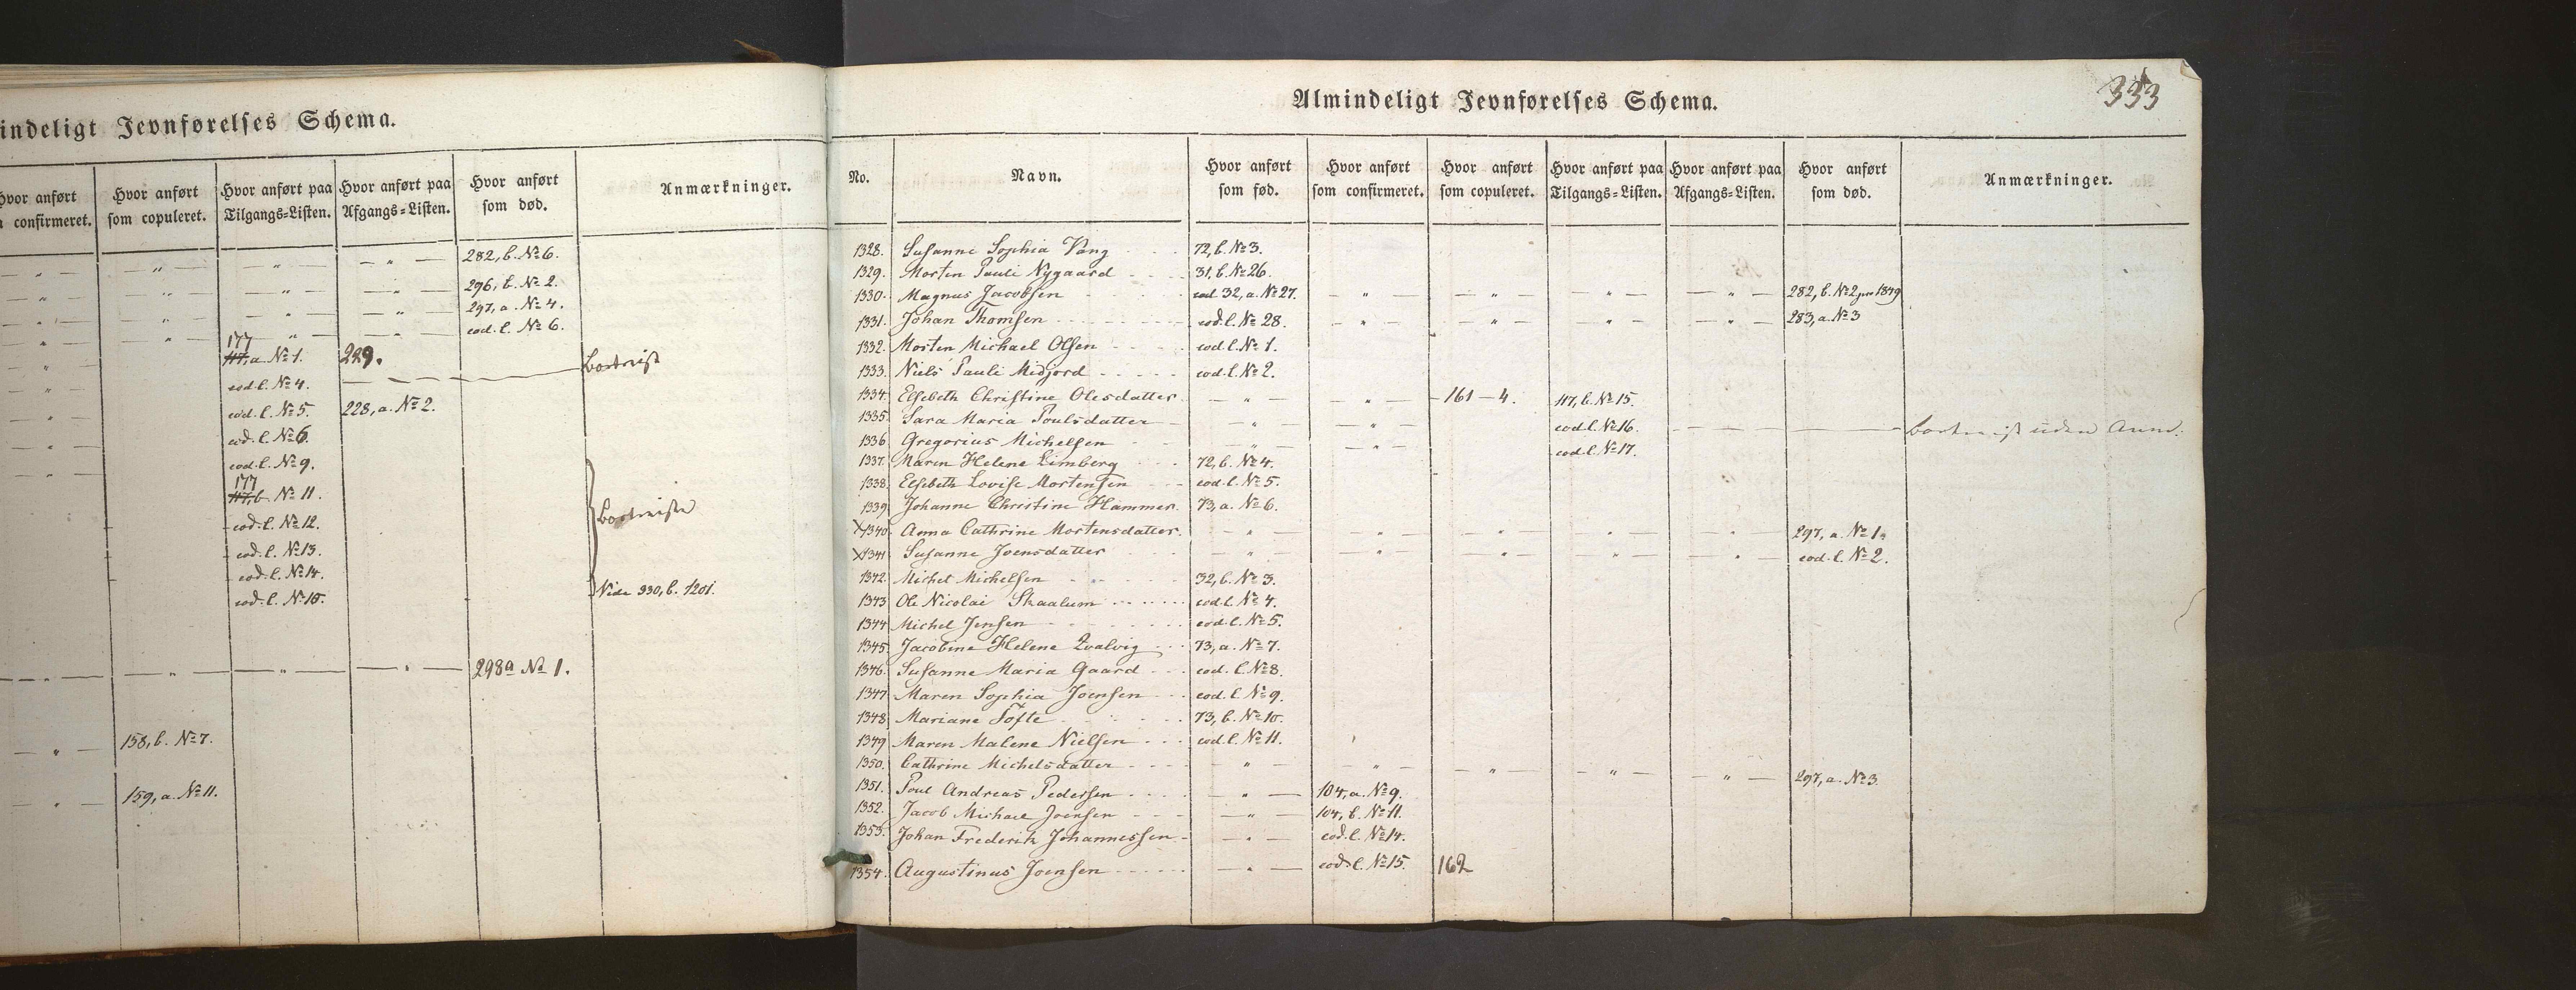 indeligt Jevnførelses Schema.
Hvor anført confirmeret. Hvor anført som copuleret. Hvor anført paa Tilgangs-Listen. Hvor anført paa Afgangs-Listen. Hvor anført som død. Anmærkninger.
— " — — " — — " — — " — 282, b. No 6.
— " — — " — — " — — " — 296, b. No 2.
— " — — " — — " — — " — 297, a. No 4.
— " — — " — — " — — " — eod. l. No 6.
— " — 177 117, a No 1. 229. Bortreist
— " — eod. l. No 4. — — —
— " — eod. l. No 5. 228, a. No 2.
— " — eod. l. No 6.
— " — eod. l. No 9.
177 117, b No 11.
eod. l. No 12. Bortreiste
eod. l. No 13.
eod. l. No 14.
eod. l. No 15. Vide 330, b. 1201.
— " — — " — — " — — " — 298a No 1.
— " — 158, b. No 7.
— " — 159, a. No 11.
Almindeligt Jevnførelses Schema.
333
No. Navn. Hvor anført som fød. Hvor anført som confirmeret. Hvor anført som copuleret. Hvor anført paa Tilgangs-Listen. Hvor anført paa Afgangs-Listen. Hvor anført som død. Anmærkninger.
1328. Susanne Sophia Vang 72, b. No 3.
1329. Morten Pauli Nygaard 31, b. No 26.
1330. Magnus Jacobsen eod 32, a. No 27. — " — — " — — " — — " — 282, b. No 2 pro 1849
1331. Johan Thomsen eod. l. No 28. — " — — " — — " — — " — 283, a. No 3
1332. Morten Michael Olsen eod. l. No 1.
1333. Niels Pauli Midjord eod. l. No 2.
1334. Elsebeth Christine Olesdatter — " — — " — 161 — 4. 117, b. No 15.
1335. Sara Maria Poulsdatter — " — — " — eod. l. No 16. — — — bortreist uden Anm:
1336. Gregorius Michelsen — " — — " — eod. l. No 17.
1337. Maren Helene Limberg 72, b. No 4.
1338. Elsebeth Lovise Mortensen eod. l. No 5.
1339. Johanne Christine Hammer 73, a. No 6.
X1340. Anna Cathrine Mortensdatter. — " — — " — — " — — " — — " — 297, a. No 1.
X1341. Susanne Joensdatter — " — — " — — " — — " — — " — eod. l. No 2.
1342. Michel Michelsen 32, b. No 3.
1343. Ole Nicolai Skaalum eod. l. No 4.
1344. Michel Jensen eod. l. No 5.
1345. Jacobine Helene Qvalvig 73, a. No 7.
1346. Susanne Maria Gaard eod. l. No 8.
1347. Maren Sophia Joensen eod. l. No 9.
1348. Mariane Tofte 73, b. No 10.
1349. Maren Malene Nielsen eod. l. No 11.
1350. Cathrine Michelsdatter — " — — " — — " — — " — — " — 297, a. No 3.
1351. Poul Andreas Pedersen — " — 104, a. No 9.
1352. Jacob Michael Joensen — " — 104, b. No 11.
1353. Johan Frederik Johannessen — " — eod. l. No 14.
1354. Augustinus Joensen — " — eod. l. No 15. 162